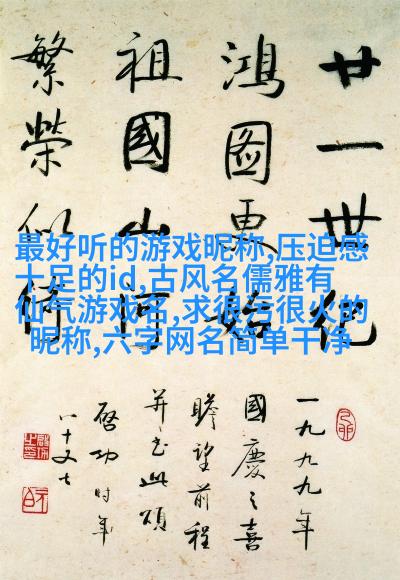 廿一世纪
鸿圖更始
祖國山河
繁荣似
一九九九年
國慶之喜
瞻望前程
并书此頌
啓功时年
八十又七
最好听的游戏昵称,压迫感
十足的id,古风名儒雅有
仙气游戏名,求很污很火的
昵称,六字网名简单干净